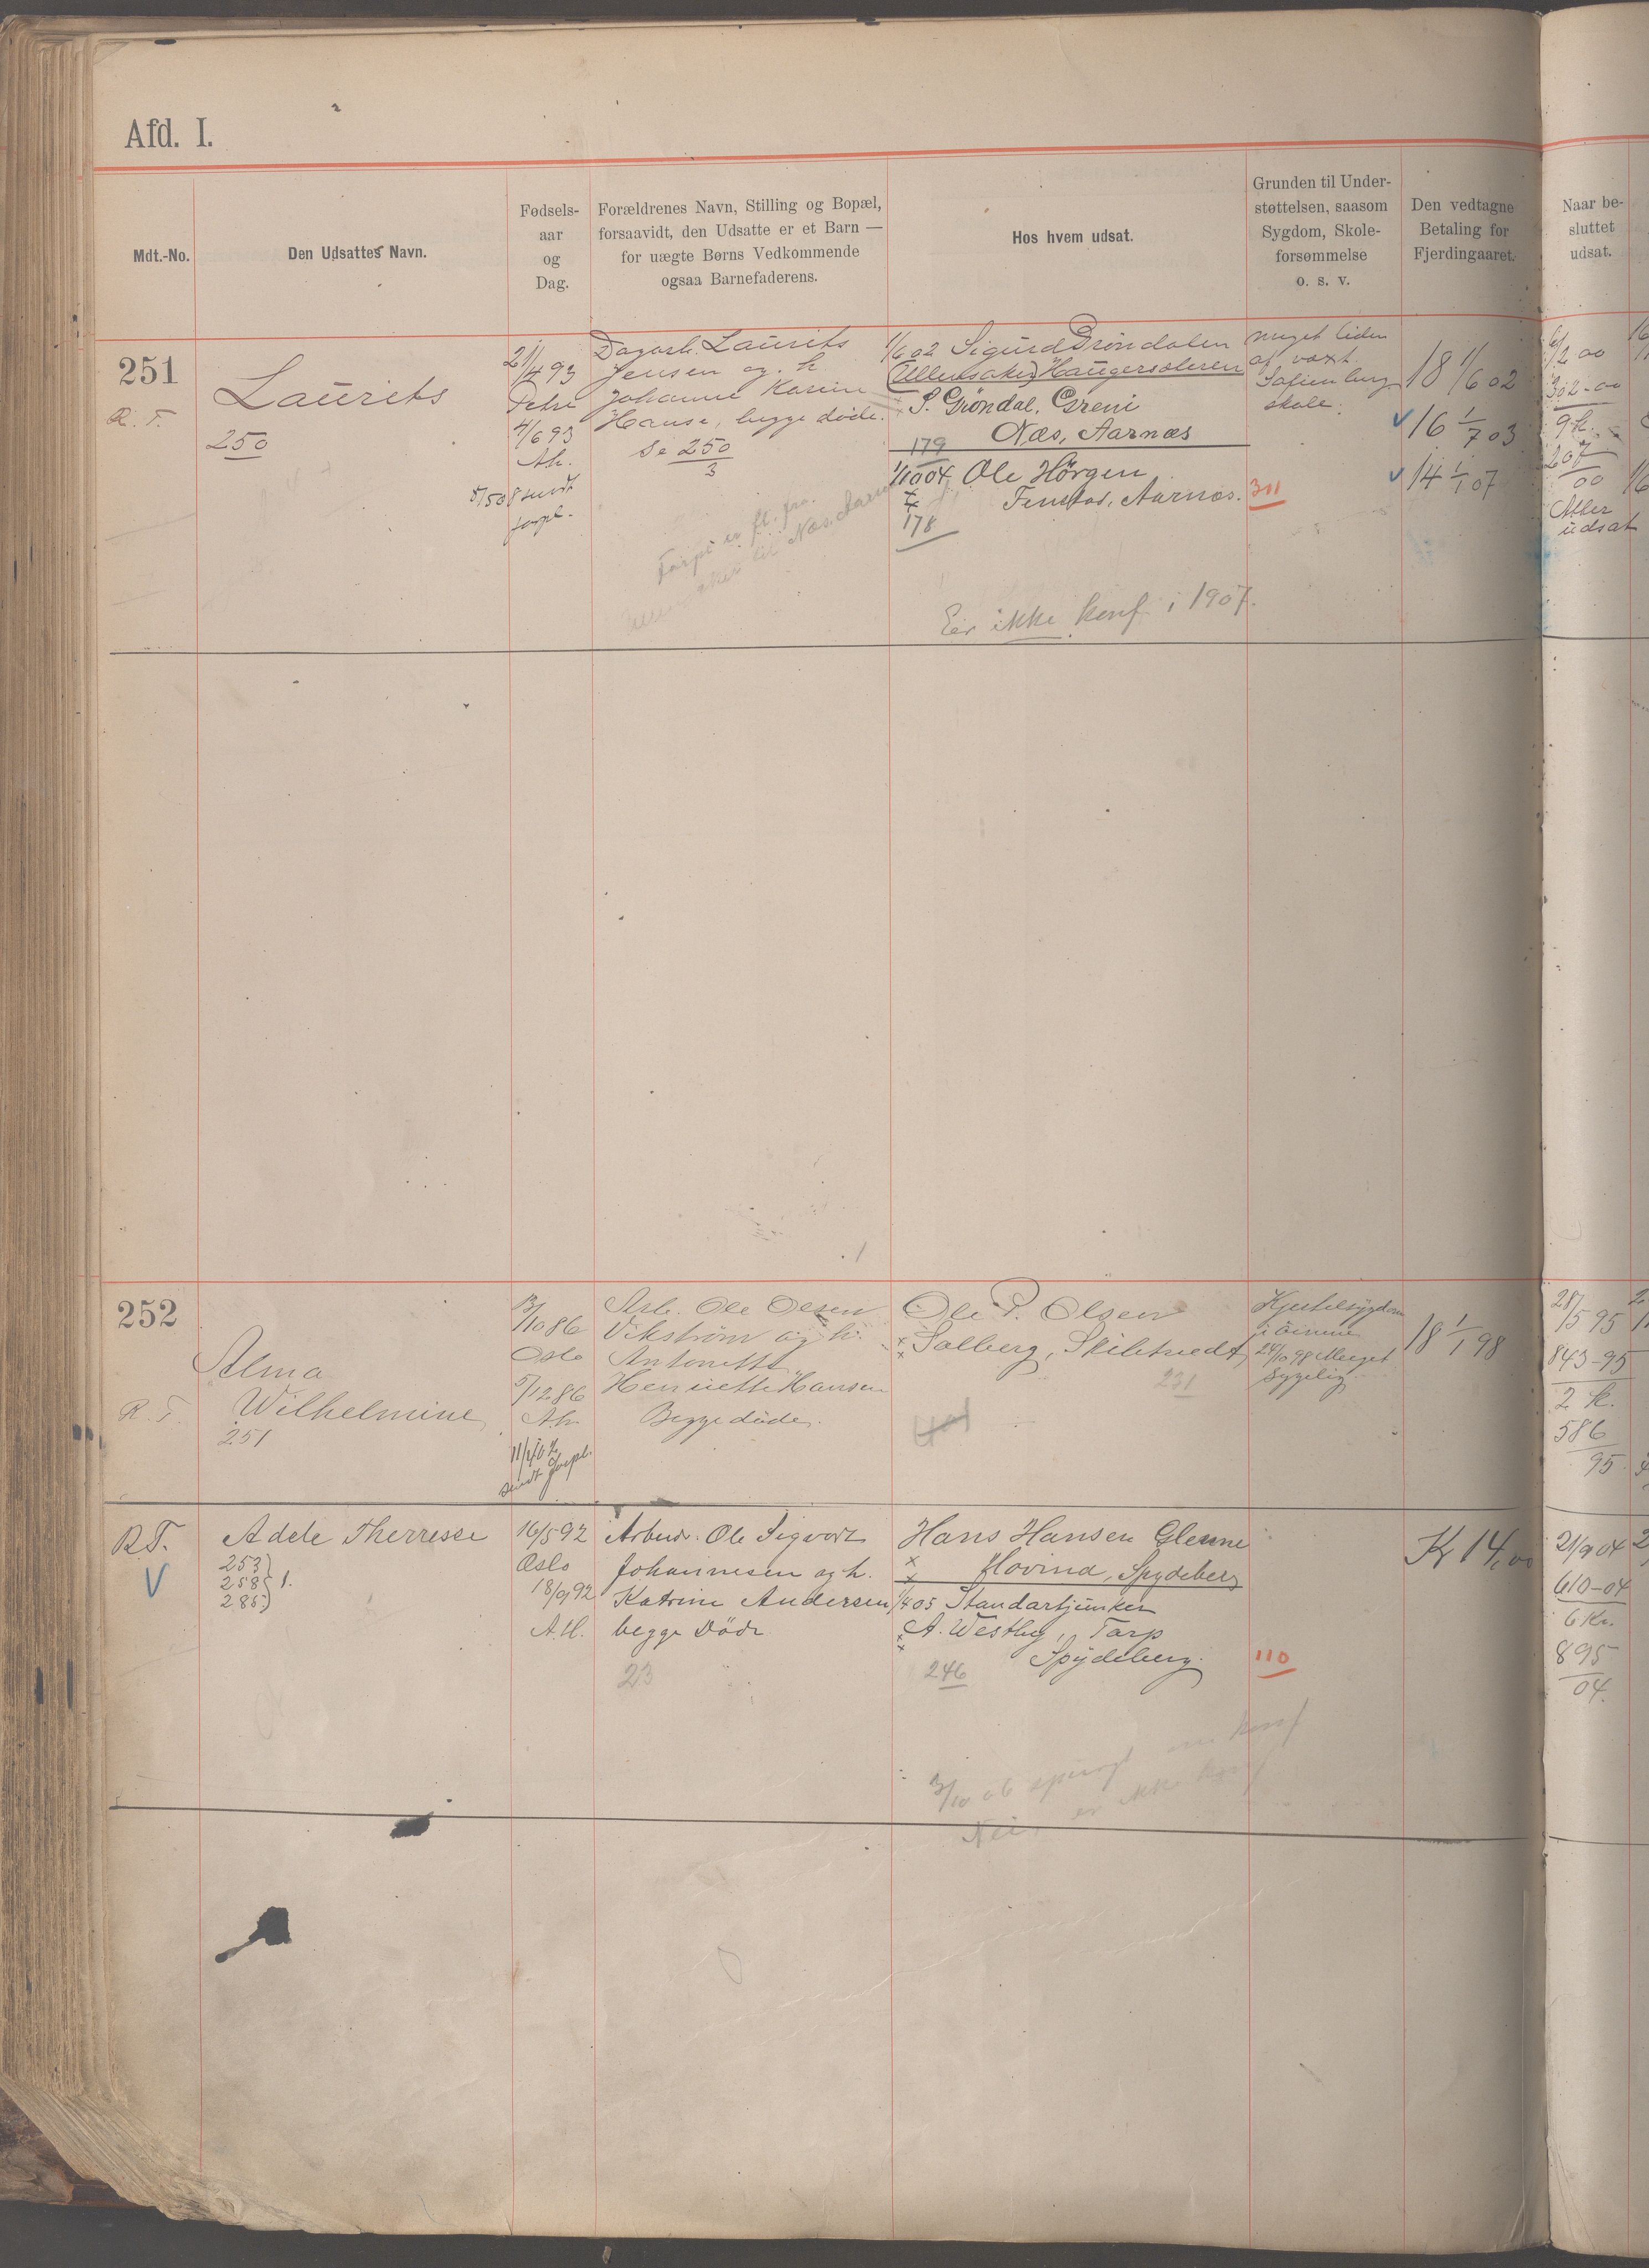 Afd. I.
Mdt.-No.
Den Udsattes Navn.
Fødsels-
aar
og
Dag.
Forældrenes Navn, Stilling og Bopæl,
forsaavidt, den Udsatte er et Barn —
for uægte Børns Vedkommende
ogsaa Barnefaderens.
Hos hvem udsat.
Grunden til Under-
støttelsen, saasom
Sygdom, Skole-
forsømmelse
o. s. v.
Den vedtagne
Betaling for
Fjerdingaaret.
Naar be-
sluttet
udsat.
251
R. T.
Laurits
250
21/4 93
Petri
4/6 93
Ak.
Dagarb. Laurits
Jensen og h.
Johanne Karine
Hansen, begge døde.
Se 250
3
1/6 02 Sigurd Gröndalen
Ullensaker, Haugersæteren
S. Gröndal, Greni
Næs, Aarnæs
179
1/10 04 Ole Hörgen
Fenstad, Aarnæs.
178
311
meget liden
af vaxt
Sofienberg
skole.
18 1/6 02
16 1/7 03
14 1/1 07
302-00
9 k.
207
00
Atter
udsat
Er ikke konf. i 1907.
252
R. T.
Alma
Wilhelmine
251
13/10 86
Oslo
5/12 86
Ak.
Arb. Ole Olsen
Vikström og h.
Antonette
Henriette Hansen
Begge døde.
Ole P. Olsen
Solberg, Skibtvedt
231
Kjertelsygdom
i öinene
24/10 98 Meeget
sygelig
18 1/1 98
28/5 95
843-95
2 k.
586
95
R.T.
V
Adele Therresse
253
258 1.
285
16/5 92
Oslo
18/9 92
A.H.
Arbeid. Ole Sigvart
Johannesen og h.
Katrine Andersen
begge Döde
23
Hans Hansen Glenne
Hovind, Spydeberg
1/4 05 Standartjunker
A. Westby, Tarp
Spydeberg.
246
110
Kr 14,00
21/9 04
610-04
6 Kr.
895
04.